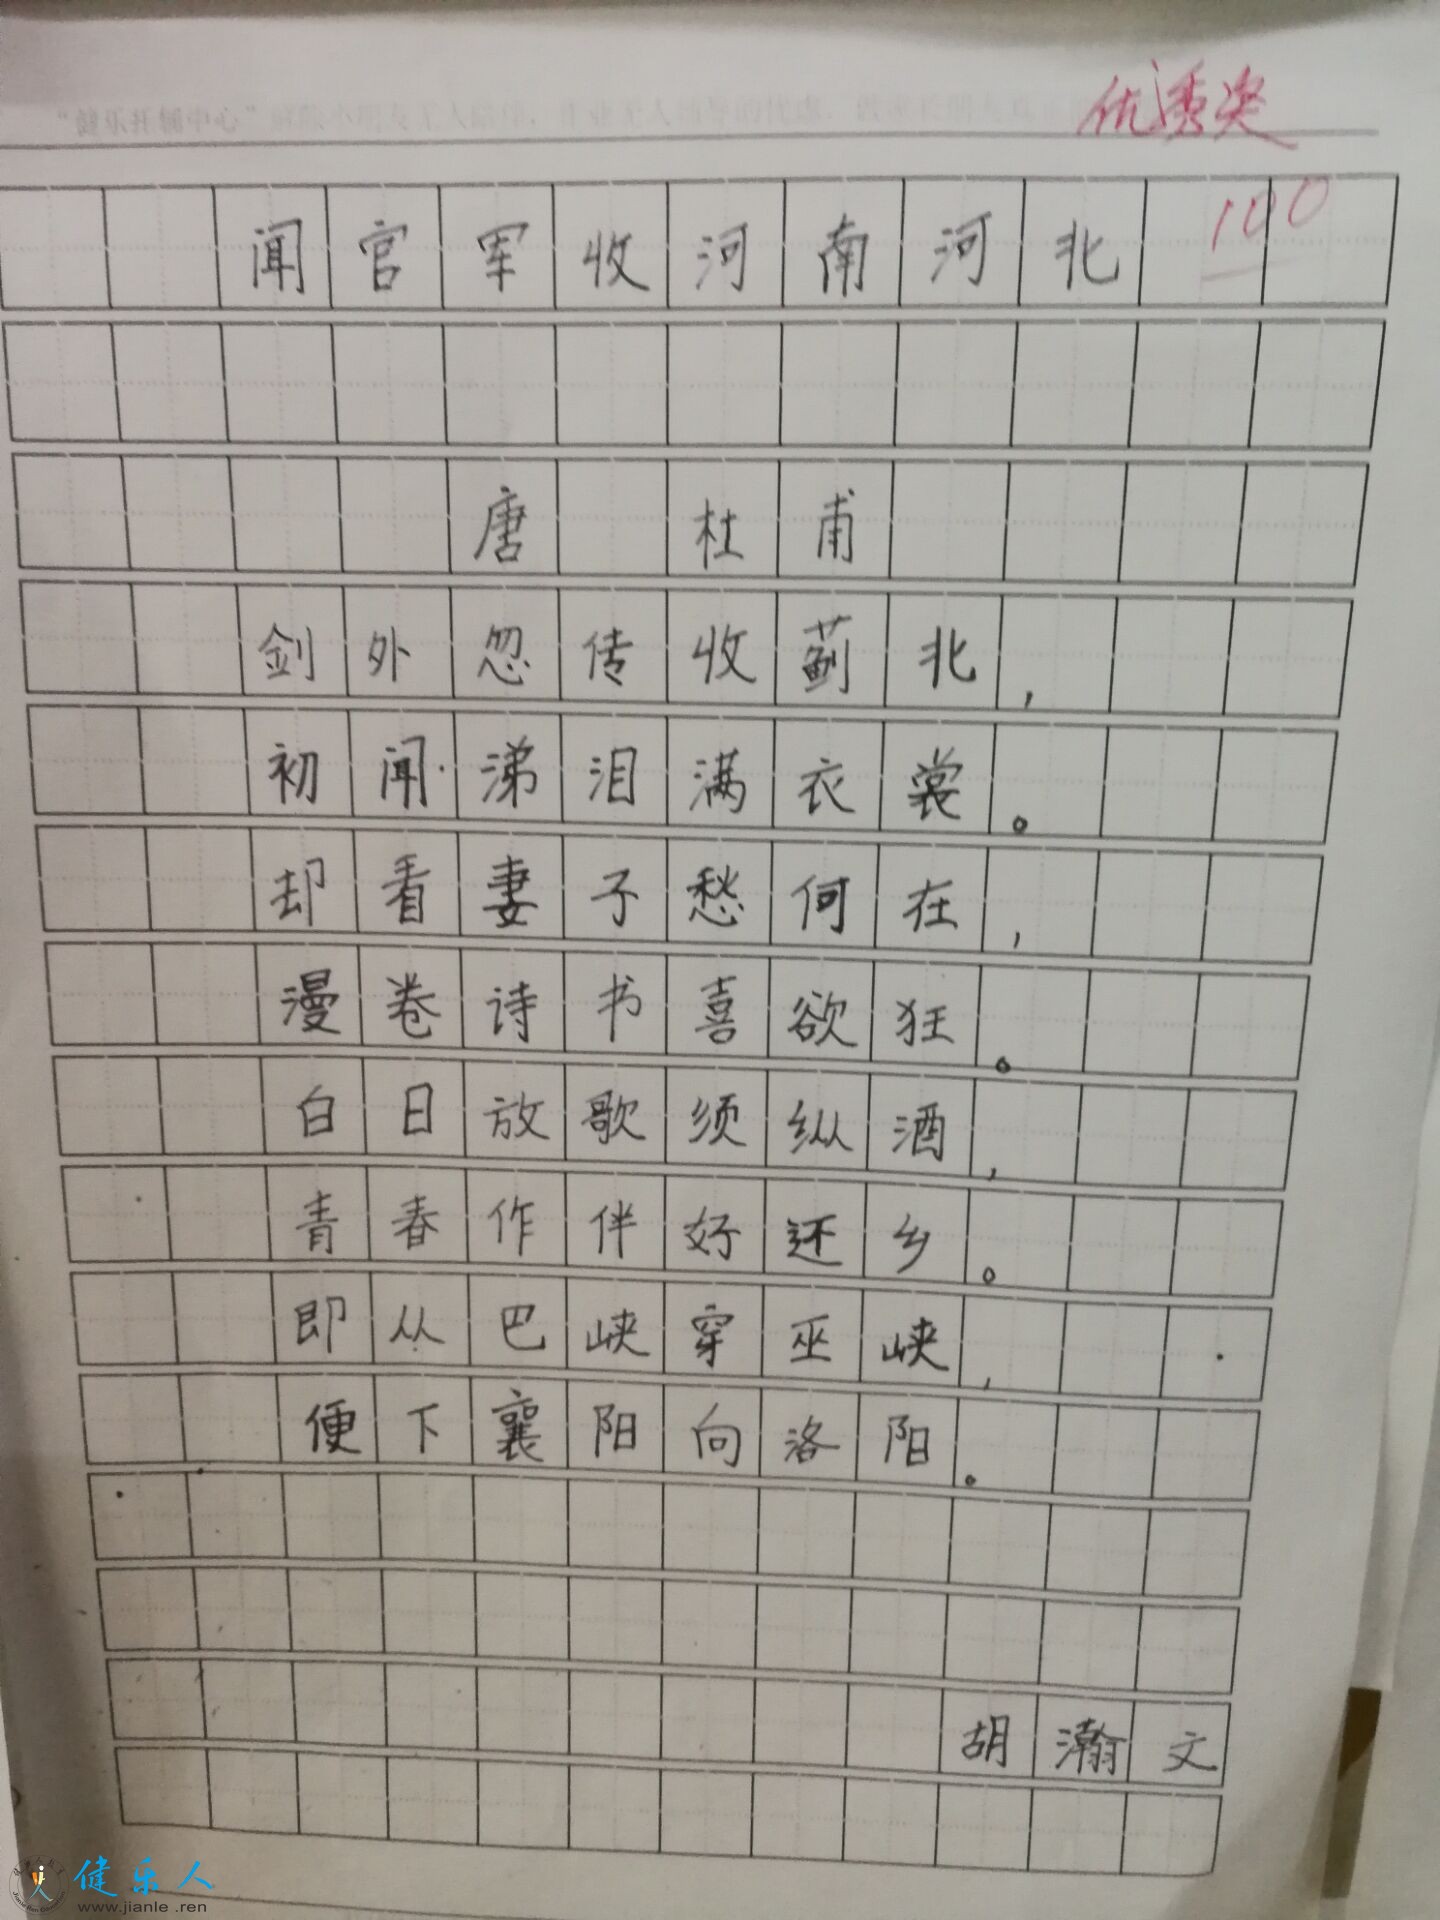 "健乐托辅中心"解除小朋友无人陪伴，作业无人辅导的忧虑
优秀奖
100
闻官军收河南河北
唐 杜甫
剑外忽传收蓟北，
初闻涕泪满衣裳。
却看妻子愁何在，
漫卷诗书喜欲狂。
白日放歌须纵酒，
青春作伴好还乡。
即从巴峡穿巫峡，
便下襄阳向洛阳。
胡瀚文
健乐人
www.jianle.ren